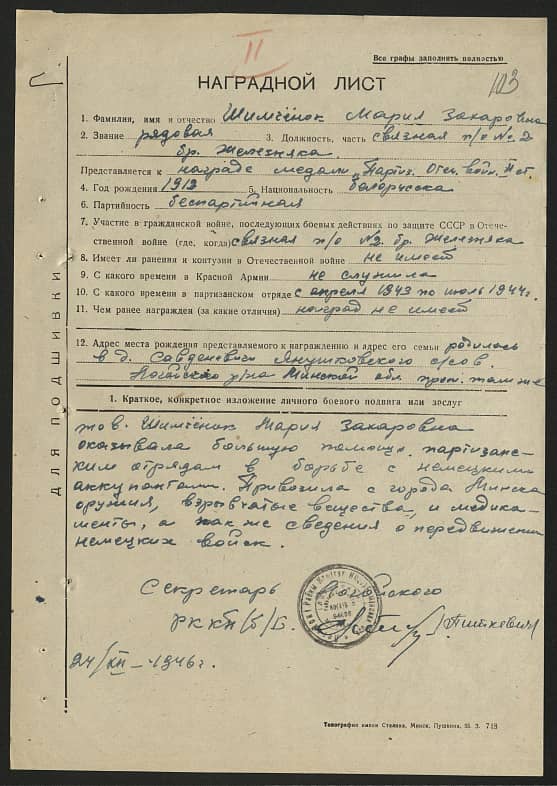 II
Все графы заполнять полностью
103
НАГРАДНОЙ ЛИСТ
1. Фамилия, имя и отчество Шимчёнок Мария Захаровна
2. Звание рядовая 3. Должность, часть связная п/о № 2
бр. Железняка
Представляется к награде медали "Партиз. Отеч. войн. II ст.
4. Год рождения 1912 5. Национальность белорусска
6. Партийность беспартийная
7. Участие в гражданской войне, последующих боевых действиях по защите СССР в Отече-
ственной войне (где, когда) связная п/о №2 бр. Железняка
8. Имеет ли ранения и контузии в Отечественной войне не имеет
9. С какого времени в Красной Армии не служила
10. С какого времени в партизанском отряде с апреля 1943 по июль 1944 г.
11. Чем ранее награжден (за какие отличия) наград не имеет
12. Адрес места рождения представляемого к награждению и адрес его семьи родилась
в д. Савденевичи Янушковского с/сов.
Логойского р/на Минской обл. прож. там же
ДЛЯ ПОДШИВКИ
1. Краткое, конкретное изложение личного боевого подвига или заслуг
тов. Шимчёнок Мария Захаровна
оказывала большую помощь партизанс-
ким отрядам в борьбе с немецкими
аккупантами. Привозила с города Минска
оружия, взрывчатые вещества, и медика-
менты, а так же сведения о передвижении
немецких войск.
Секретарь Логойского
РККП(б)Б.
24/XII-1946 г.
Типография имени Сталина, Минск, Пушкина, 55. З. 718